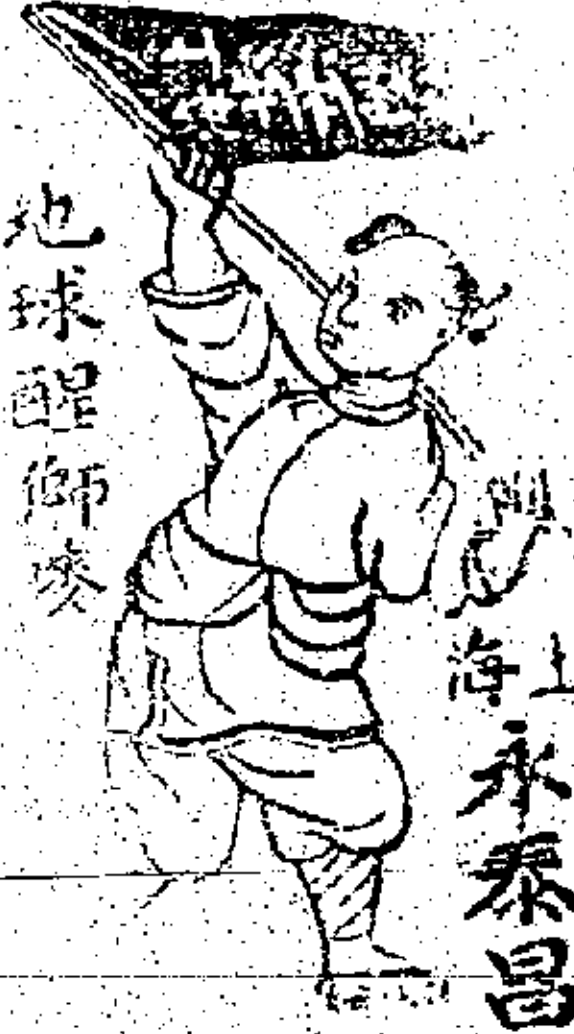 上海
永泰昌
地球醒獅嘜